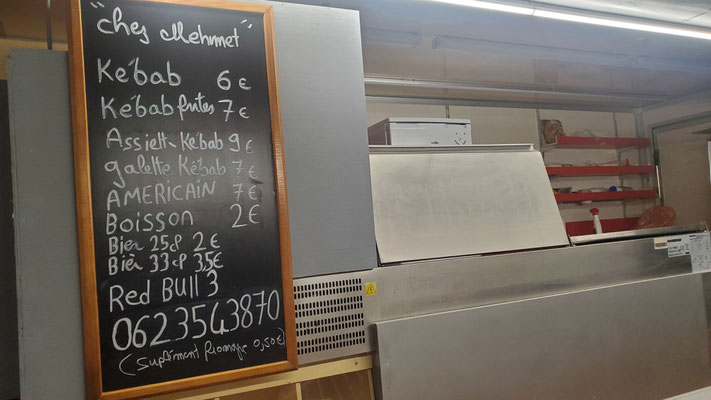 "chez Mehmet"
Kébab 6€
Kébab frites 7€
Assiett-Kébab 9€
galette Kébab 7€
AMERICAIN 7€
BOISSON 2€
Bier 25cl 2€
Bièr 33cl 3,5€
Red BULL 3
0623543870
(Suplément fromage 0,50€)